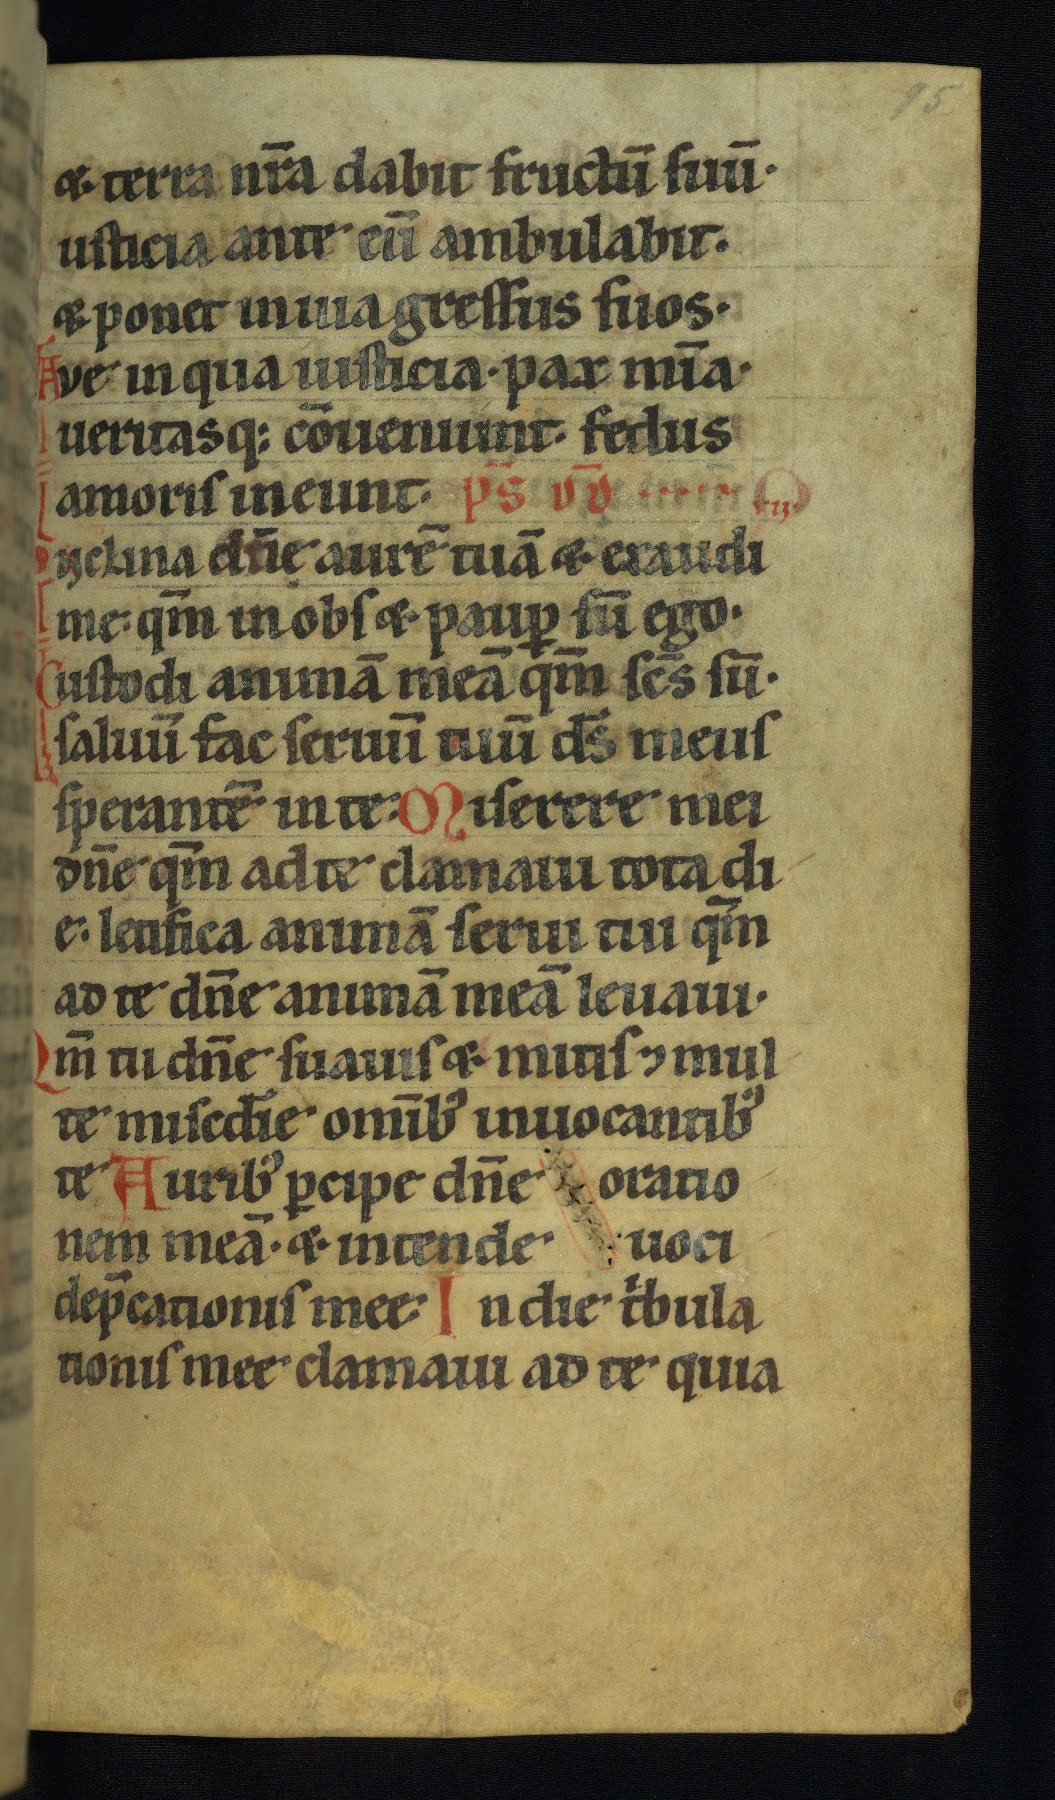 95
& terra nr̄a dabit fructū suū·
usticia ante eū ambulabit.
& ponet in uia gressus suos.
Ave in qua iusticia· pax mīa·
ueritasq; cōueniunt· fedus
amoris ineunt. ps̄ dd̄
Inclina dn̄e aurē tuā & exaudi
me: qm̄ inobs & paup̲ sū ego.
Custodi animā meā qm̄ sc̄s sū·
saluū fac seruū tuū ds̄ meus
sperantē in te: Miserere mei
dn̄e qm̄ ad te clamaui tota di
e: letifica animā serui tui qm̄
ad te dn̄e animā meā leuaui·
Qm̄ tu dn̄e suauis & mitis ⁊ mul
te misc̄die omībꝰ inuocantibꝰ
te Auribꝰ p̲cipe dn̄e oratio
nem meā· & intende· uoci
dep̄cationis mee· In die t̄bula
tionis mee clamaui ad te quia